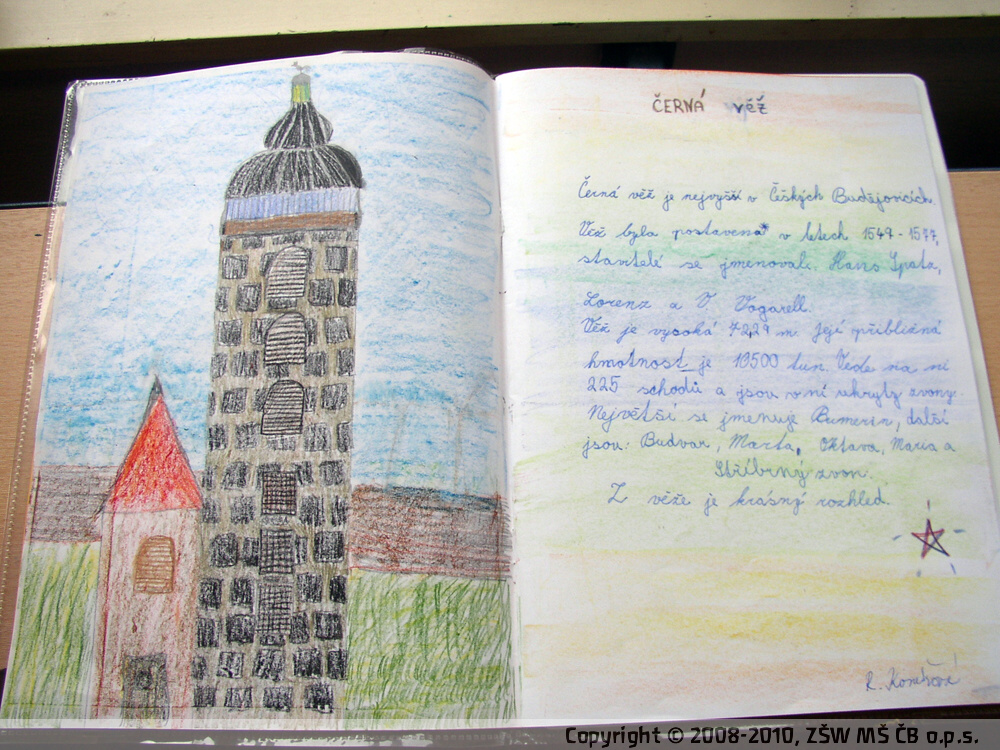 ČERNÁ věž
Černá věž je nejvyšší v Českých Budějovicích.
Věž byla postavena v letech 1549-1577,
stavitelé se jmenovali: Hans Spata,
Lorenz a V. Vogarell.
Věž je vysoká 72,29 m. Její přibližná
hmotnost je 10500 tun. Vede na ní
225 schodů a jsou v ní ukryty zvony.
Největší se jmenuje Bumerin, další
jsou: Budvar, Marta, Oktava, Maria a
Stříbrný zvon.
Z věže je krásný rozhled.
R.
Copyright © 2008-2010, ZŠW MŠ ČB o.p.s.